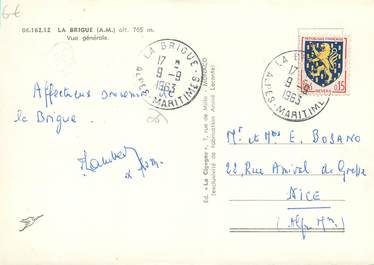 6€
06.162.12 LA BRIGUE (A.M.) alt. 765 m.
Vue générale.
LA BRIGUE
17 H
9-9
1963
ALPES-MARITIMES
Affectueux souvenir
la Brigue.
Ed. « La Cigogne », 7, rue de Millo - MONACO
(exclusivité de fabrication André Leconte)
LA BRIGUE
17
9-9
1963
ALPES-MARITIMES
REPUBLIQUE FRANCAISE
NEVERS
0,15
Mr et Mme E. BOSANO
22, Rue Amiral de Grasse
NICE
(Alpes Mmes)